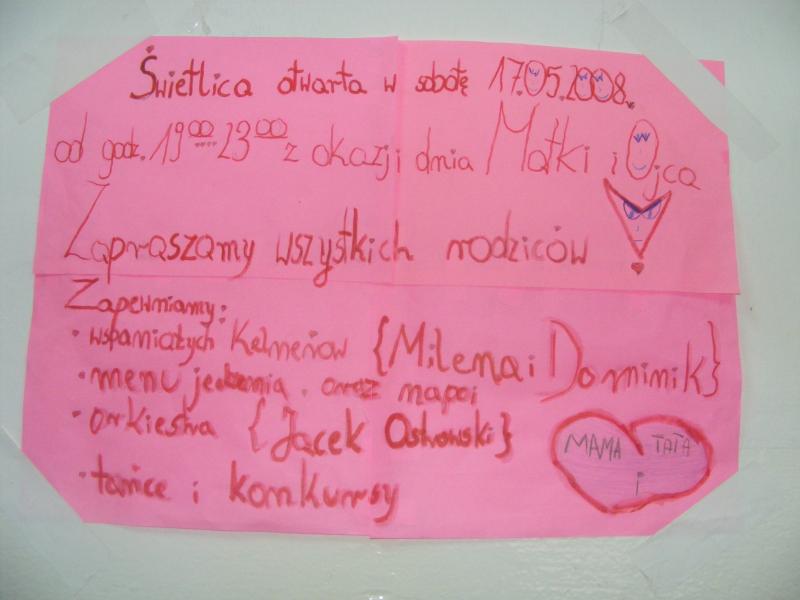 Świetlica otwarta w sobotę 17.05.2008.
od godz. 19⁰⁰ 23⁰⁰ z okazji dnia Matki i Ojca
Zapraszamy wszystkich rodziców
Zapewniamy:
• wspaniałych Kelnerów {Milena i Dominik}
• menu jedzenia. oraz napoi
• orkiestra {Jacek Ostrowski}
• tańce i konkursy
MAMA TATA
i